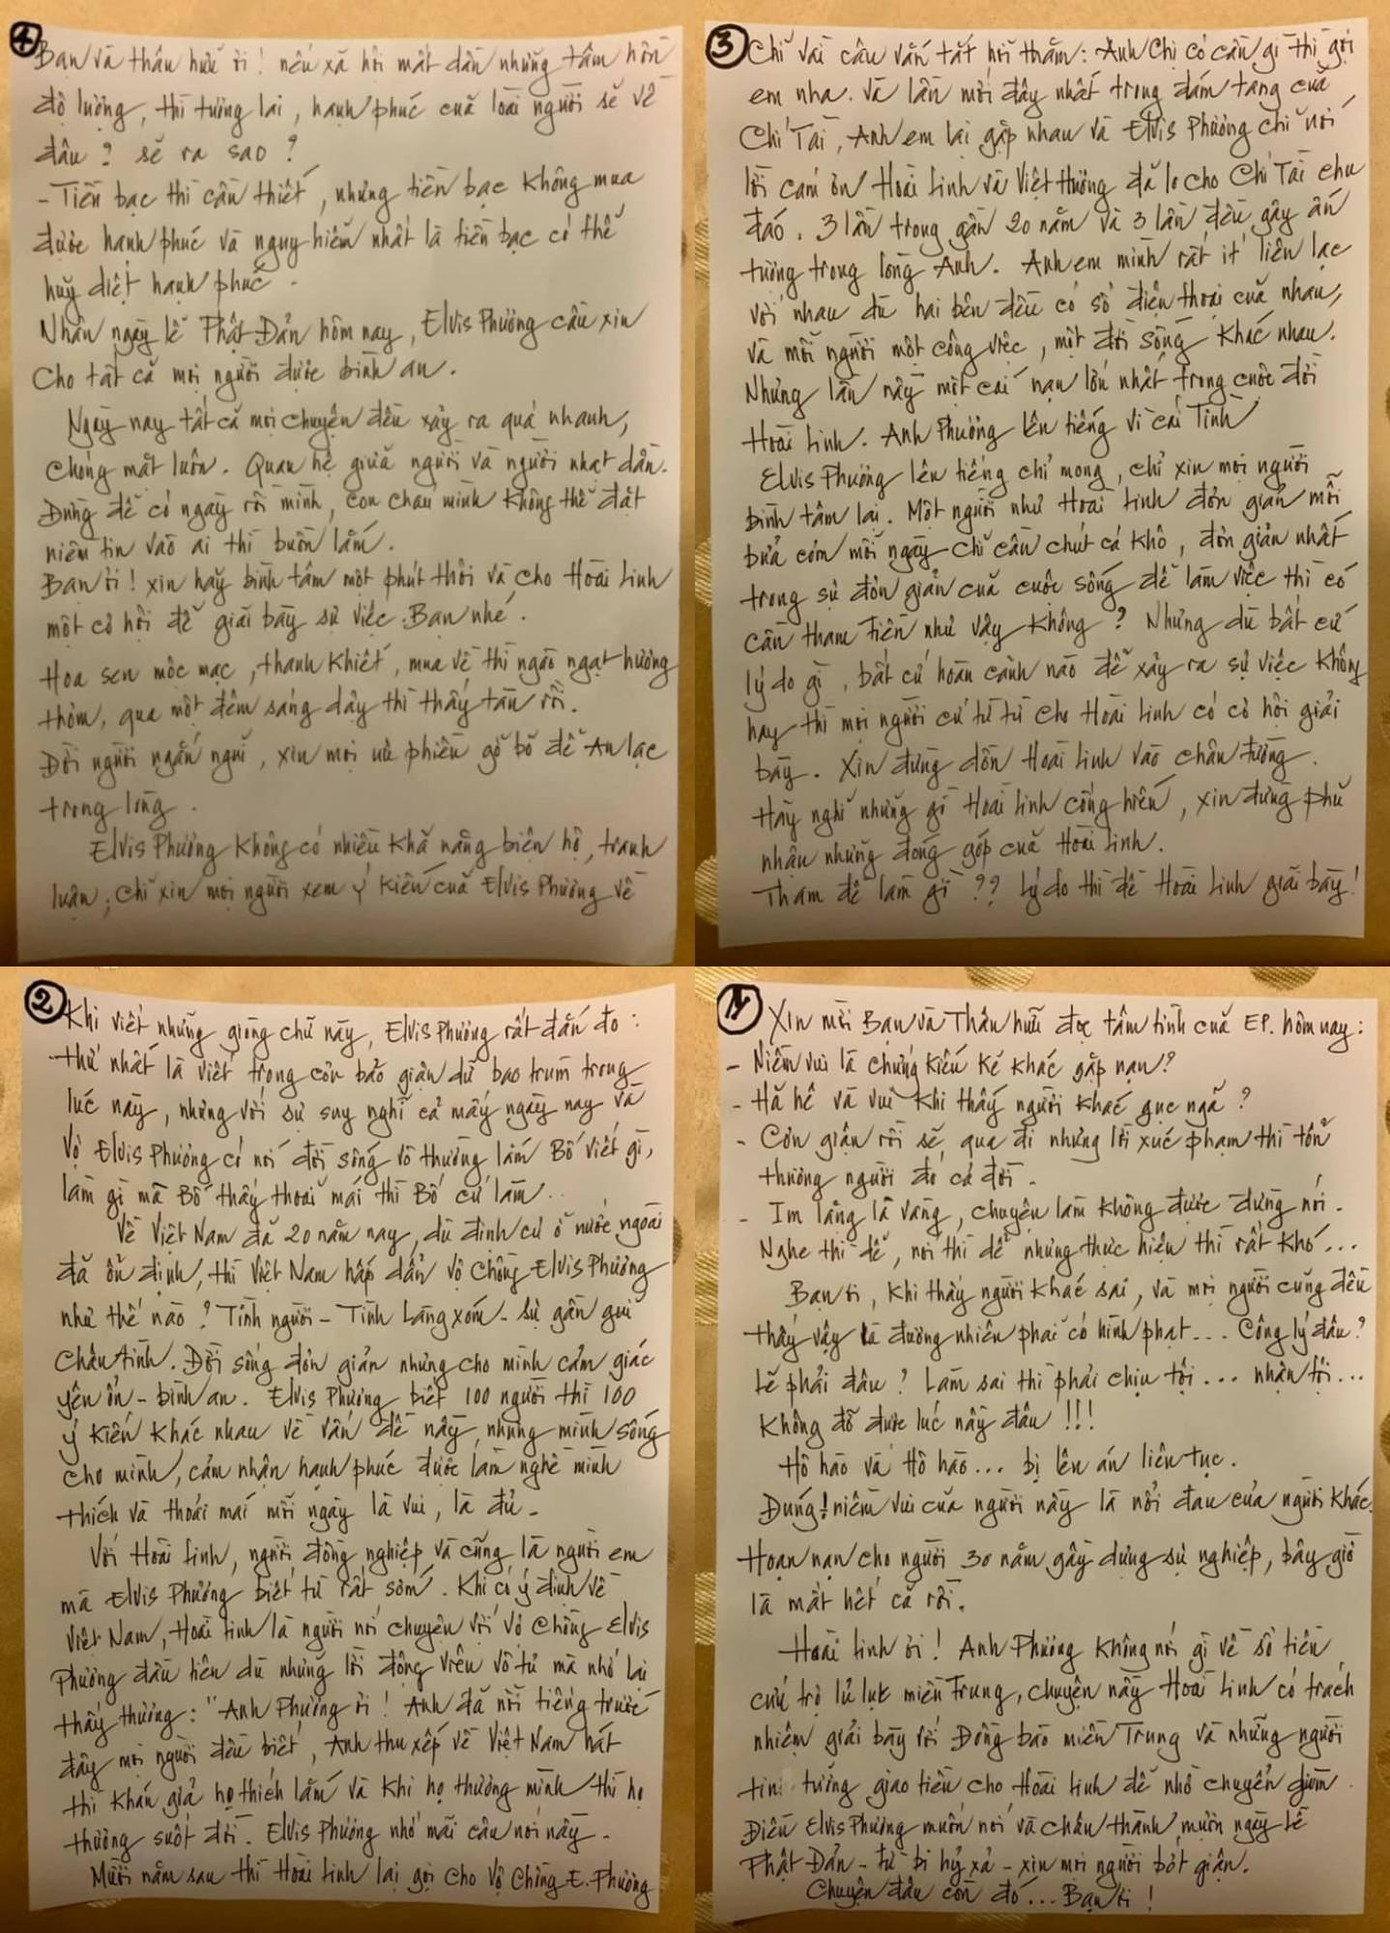 1 Xin mời Bạn và Thân hữu đọc tâm tình của EP. hôm nay:
- Niềm vui là chứng kiến kẻ khác gặp nạn?
- Hả hê và vui khi thấy người khác gục ngã?
- Cơn giận rồi sẽ qua đi nhưng lời xúc phạm thì tổn
thương người đó cả đời.
- Im lặng là vàng, chuyện làm không được đừng nói.
Nghe thì dễ, nói thì dễ nhưng thực hiện thì rất khó...
Bạn ơi, khi thấy người khác sai, và mọi người cũng đều
thấy vậy là đương nhiên phải có hình phạt... Công lý đâu?
Lẽ phải đâu? Làm sai thì phải chịu tội... nhận tội...
Không đỡ được lúc này đâu!!!
Hô hào và Hô hào... bị lên án liên tục.
Đúng! niềm vui của người này là nỗi đau của người khác.
Hoạn nạn cho người 30 năm gây dựng sự nghiệp, bây giờ
là mất hết cả rồi.
Hoài Linh ơi! Anh Phương không nói gì về số tiền
cứu trợ lũ lụt miền Trung, chuyện này Hoài Linh có trách
nhiệm giải bày với Đồng bào miền Trung và những người
tin tưởng giao tiền cho Hoài Linh để nhờ chuyển giùm
Điều Elvis Phương muốn nói và chân thành, muốn ngày Lễ
Phật Đản - từ bi hỷ xả - xin mọi người bớt giận.
Chuyện đâu còn đó... Bạn ơi!
2 Khi viết những giòng chữ này, Elvis Phương rất đắn đo:
thứ nhất là viết trong cơn bão giận dữ bao trùm trong
lúc này, nhưng với sự suy nghĩ cả mấy ngày nay và
Vợ Elvis Phương có nói đời sống vô thường lắm Bố viết gì,
làm gì mà Bố thấy thoải mái thì Bố cứ làm..
Về Việt Nam đã 20 năm nay, dù định cư ở nước ngoài
đã ổn định, thì Việt Nam hấp dẫn vợ chồng Elvis Phương
như thế nào? Tình người - Tình Làng xóm - sự gần gũi
Chân tình. Đời sống đơn giản nhưng cho mình cảm giác
yên ổn - bình an. Elvis Phương biết 100 người thì 100
ý kiến khác nhau về vấn đề này, nhưng mình sống
cho mình, cảm nhận hạnh phúc được làm nghề mình
thích và thoải mái mỗi ngày là vui, là đủ.
Với Hoài Linh, người đồng nghiệp và cũng là người em
mà Elvis Phương biết từ rất sớm. Khi có ý định về
Việt Nam, Hoài Linh là người nói chuyện với vợ chồng Elvis
Phương đầu tiên dù những lời động viên vô tư mà nhớ lại
thấy thương: "Anh Phương ơi! Anh đã nổi tiếng trước
đây mọi người đều biết, Anh thu xếp về Việt Nam hát
thì khán giả họ thích lắm và khi họ thương mình thì họ
thương suốt đời. Elvis Phương nhớ mãi câu nói này.
Mười năm sau thì Hoài Linh lại gọi cho Vợ Chồng E. Phương
3 Chỉ vài câu vắn tắt hỏi thăm: Anh Chị có cần gì thì gọi
em nha. Và lần mới đây nhất trong đám tang của
Chí Tài, Anh em lại gặp nhau và Elvis Phương chỉ nói
lời cám ơn Hoài Linh và Việt Hương đã lo cho Chí Tài chu
đáo. 3 lần trong gần 20 năm và 3 lần đều gây ấn
tượng trong lòng Anh. Anh em mình rất ít liên lạc
với nhau dù hai bên đều có số điện thoại của nhau,
và mỗi người một công việc, một đời sống khác nhau.
Nhưng lần này một cái nạn lớn nhất trong cuộc đời
Hoài Linh. Anh Phương lên tiếng vì cái Tình
Elvis Phương lên tiếng chỉ mong, chỉ xin mọi người
bình tâm lại. Một người như Hoài Linh đơn giản mỗi
bửa cơm mỗi ngày chỉ cần chút cá khô, đơn giản nhất
trong sự đơn giản của cuộc sống để làm việc thì có
cần tham tiền như vậy không? Nhưng dù bất cứ
lý do gì, bất cứ hoàn cảnh nào để xảy ra sự việc không
hay thì mọi người cứ từ từ cho Hoài Linh có cơ hội giải
bày. Xin đừng dồn Hoài Linh vào chân tường.
Hãy nghĩ những gì Hoài Linh cống hiến, xin đừng phủ
nhận những đóng góp của Hoài Linh.
Tham để làm gì?? Lý do thì để Hoài Linh giải bày!
4 Bạn và thân hữu ơi! nếu xã hội mất dần những tâm hồn
độ lượng, thì tương lai, hạnh phúc của loài người sẽ về
đâu? sẽ ra sao?
- Tiền bạc thì cần thiết, nhưng tiền bạc không mua
được hạnh phúc và nguy hiểm nhất là tiền bạc có thể
huỷ diệt hạnh phúc.
Nhân ngày lễ Phật Đản hôm nay, Elvis Phương cầu xin
Cho tất cả mọi người được bình an.
Ngày nay tất cả mọi chuyện đều xảy ra quá nhanh,
chóng mặt luôn. Quan hệ giữa người và người nhạt dần.
Đừng để có ngày rồi mình, con cháu mình không thể đặt
niềm tin vào ai thì buồn lắm.
Bạn ơi! xin hãy bình tâm một phút thôi và cho Hoài Linh
một cơ hội để giải bày sự việc. Bạn nhé.
Hoa sen mộc mạc, thanh khiết, mua về thì ngào ngạt hương
thơm, qua một đêm sáng dậy thì thấy tàn rồi.
Đời người ngắn ngủi, xin mọi ưu phiền gỡ bỏ để An lạc
trong lòng.
Elvis Phương không có nhiều khả năng biện hộ, tranh
luận; chỉ xin mọi người xem ý kiến của Elvis Phương về